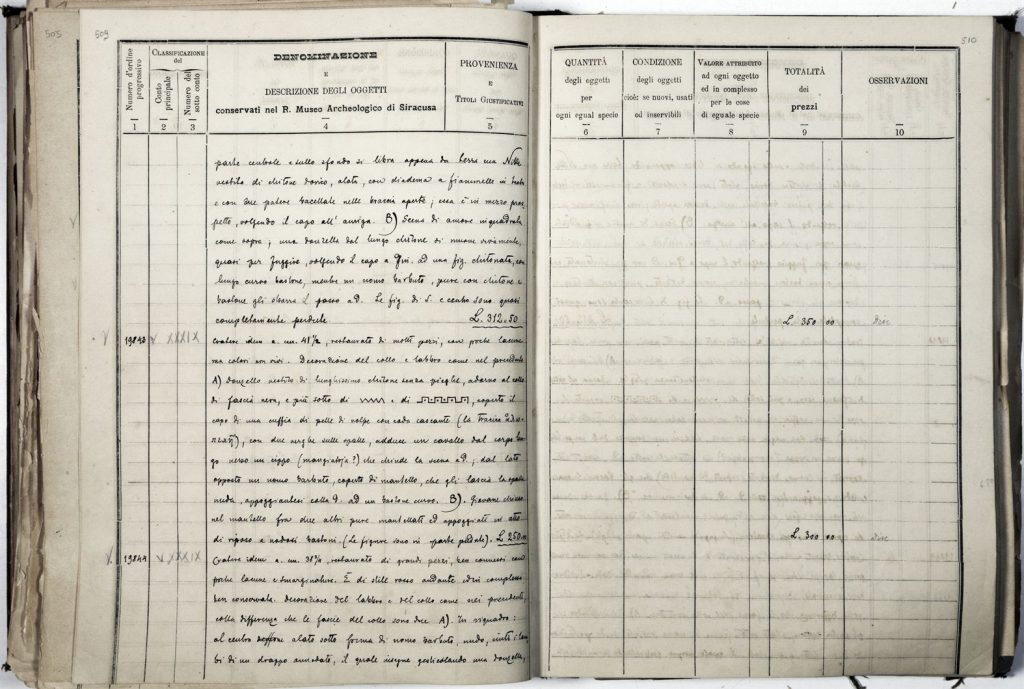 505
509
Numero d'ordine progressivo
CLASSIFICAZIONE del
Conto principale
Numero del sotto conto
DENOMINAZIONE
E
DESCRIZIONE DEGLI OGGETTI
conservati nel R. Museo Archeologico di Siracusa
PROVENIENZA
E
TITOLI GIUSTIFICATIVI
1 2 3 4 5
parte centrale e sullo sfondo si libra appena da terra una Nike
vestita di chitone dorico, alata, con diadema a fiammelle in testa
e con due patere baccellate nelle braccia aperte; essa è in mezzo pros
petto, volgendo il capo all'auriga. B) Scena di amore inquadrata
come sopra; una donzella dal lungo chitone si muove vivamente,
quasi per fuggire, volgendo il capo a ad una fig. chitonata, con
lungo curvo bastone, mentre un uomo barbuto, pure con chitone e
bastone gli sbarra il passo a D. Le fig. di S. e centro sono quasi
completamente perdute L. 312.50
V 19843 V XXXIX Cratere idem a cm. 41½, restaurato di molti pezzi, con poche lacune
ma colori vivi. Decorazione del collo e labbro come nel precedente
A) donzello vestito di lunghissimo chitone senza pieghe, adorno al collo
di fascia nera, e più sotto di e di , coperto il
capo di una cuffia di pelle di volpe con coda cascante (la Tracica
), con due verghe sulle spalle, adduce un cavallo dal corpo lun
go verso un cippo (mangiatoja?) che chiude la scena a D; dal lato
opposto un uomo barbuto, coperto di mantello, che gli lascia la spalla
nuda, appoggiantesi colla D. ad un bastone curvo. B). Giovane chiuso
nel mantello fra due altri pure mantellati ed appoggiati in atto
di riposo a nodosi bastoni (Le figure sono in parte perdute). L. 250.
V 19844 V XXXIX Cratere idem a cm. 38½, restaurato di grandi pezzi, ben connessi con
poche lacune e smarginature. È di stile rosso andante ed in complesso
ben conservata. Decorazione del labbro e del collo come nei precedenti,
colla differenza che le fascie del collo sono due A). In riquadro:
al centro alato sotto forma di uomo barbuto, nudo, cinti i lom
bi di un drappo annodato, il quale insegue gesticolando una donzella,
510
QUANTITÀ
degli oggetti
per
ogni egual specie
CONDIZIONE
degli oggetti
cioè: se nuovi, usati
od inservibili
VALORE ATTRIBUITO
ad ogni oggetto
ed in complesso
per le cose
di eguale specie
TOTALITÀ
dei
prezzi
OSSERVAZIONI
6 7 8 9 10
L 350 00
L. 300 00